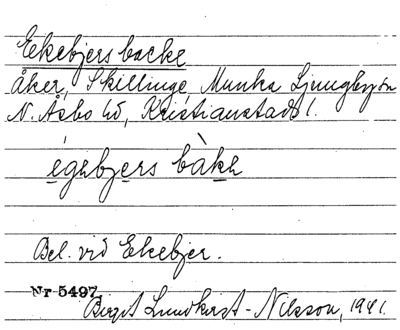 Ekebjers backe
Åker, Skillinge, Munka Ljungby sn
N. Åsbo hd, Kristianstads l.
égebjers bàke
Bel. vid Ekebjer.
Nr 5497
Birgit Lundkvist-Nilsson, 1941.